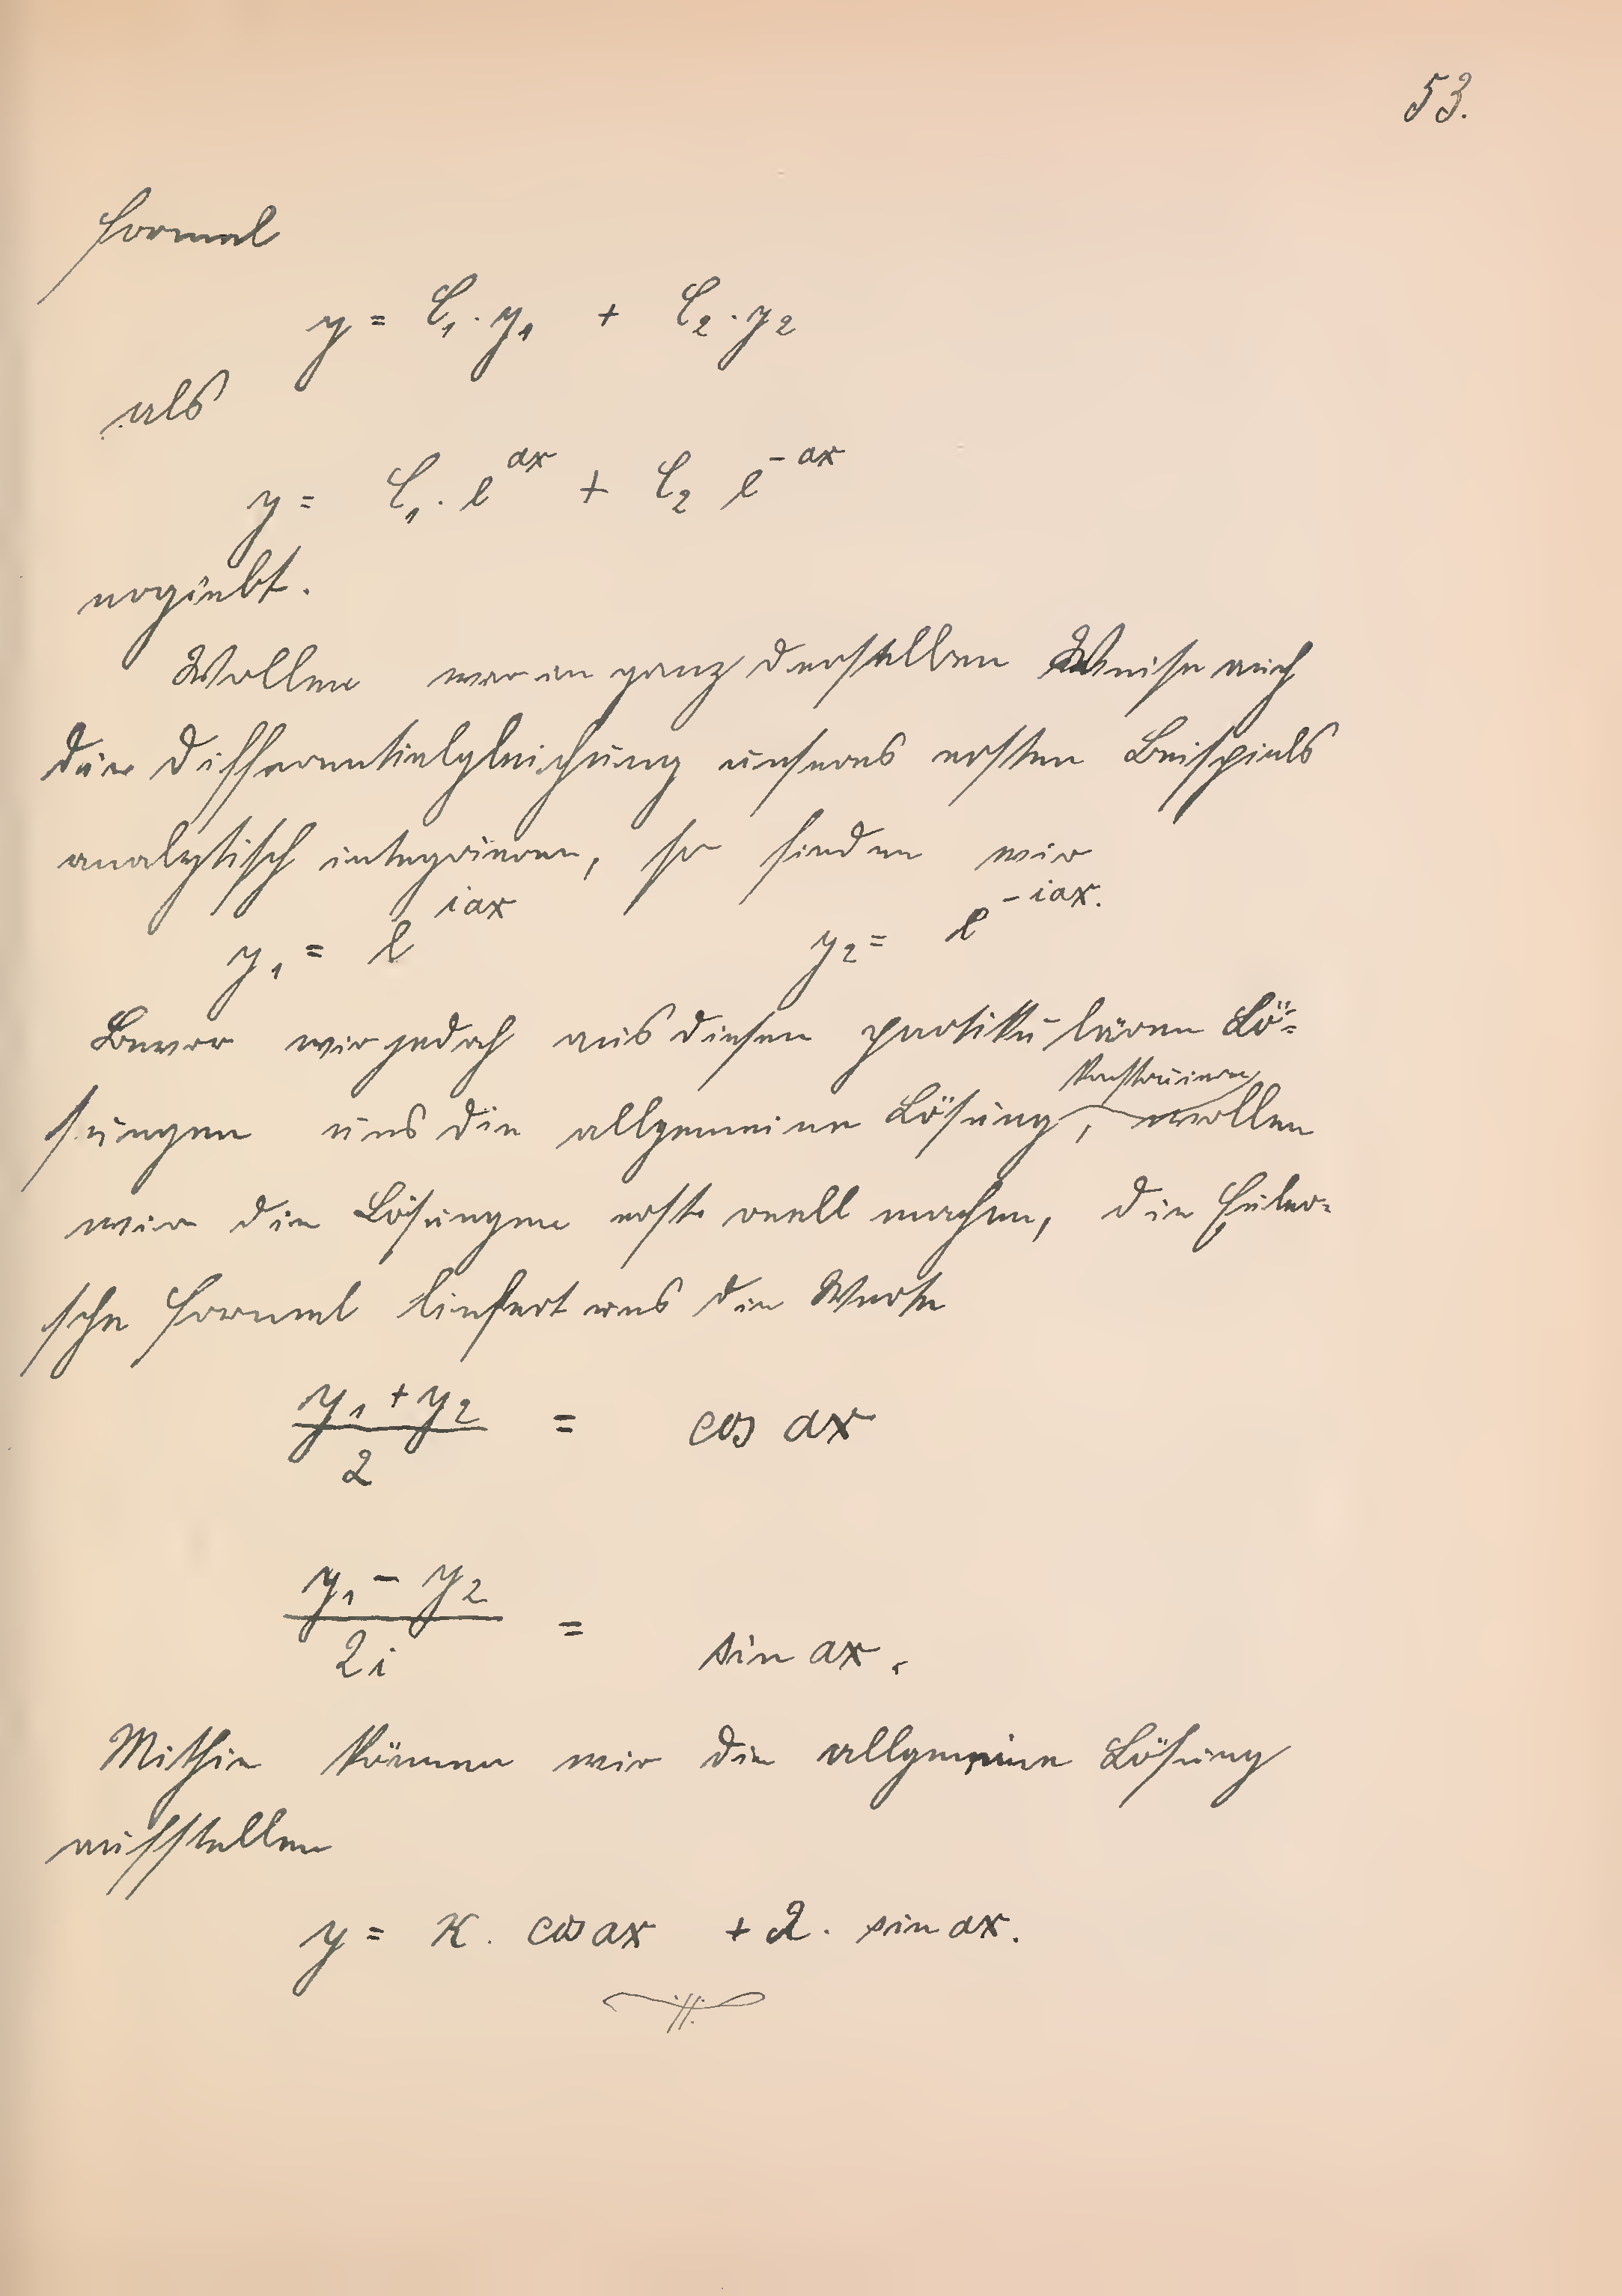 53.
Formel
y = C₁ · y₁ + C₂ · y₂
als
y = C₁ · e^{ax} + C₂ e^{-ax}
ergiebt.
Wollen wir in ganz derselben Weise auch
die Differentialgleichung unseres ersten Beispiels
analytisch integrieren, so finden wir
y₁ = e^{iax} y₂ = e^{-iax}.
Bevor wir jedoch aus diesen partikulären Lö=
konstruieren
sungen uns die allgemeine Lösung, wollen
wir die Lösungen erst reell machen, die Euler=
sche Formel liefert uns die Werte
(y₁ + y₂)/2 = cos ax
(y₁ - y₂)/2i = sin ax.
Mithin können wir die allgemeine Lösung
aufstellen
y = K · cos ax + λ · sin ax.